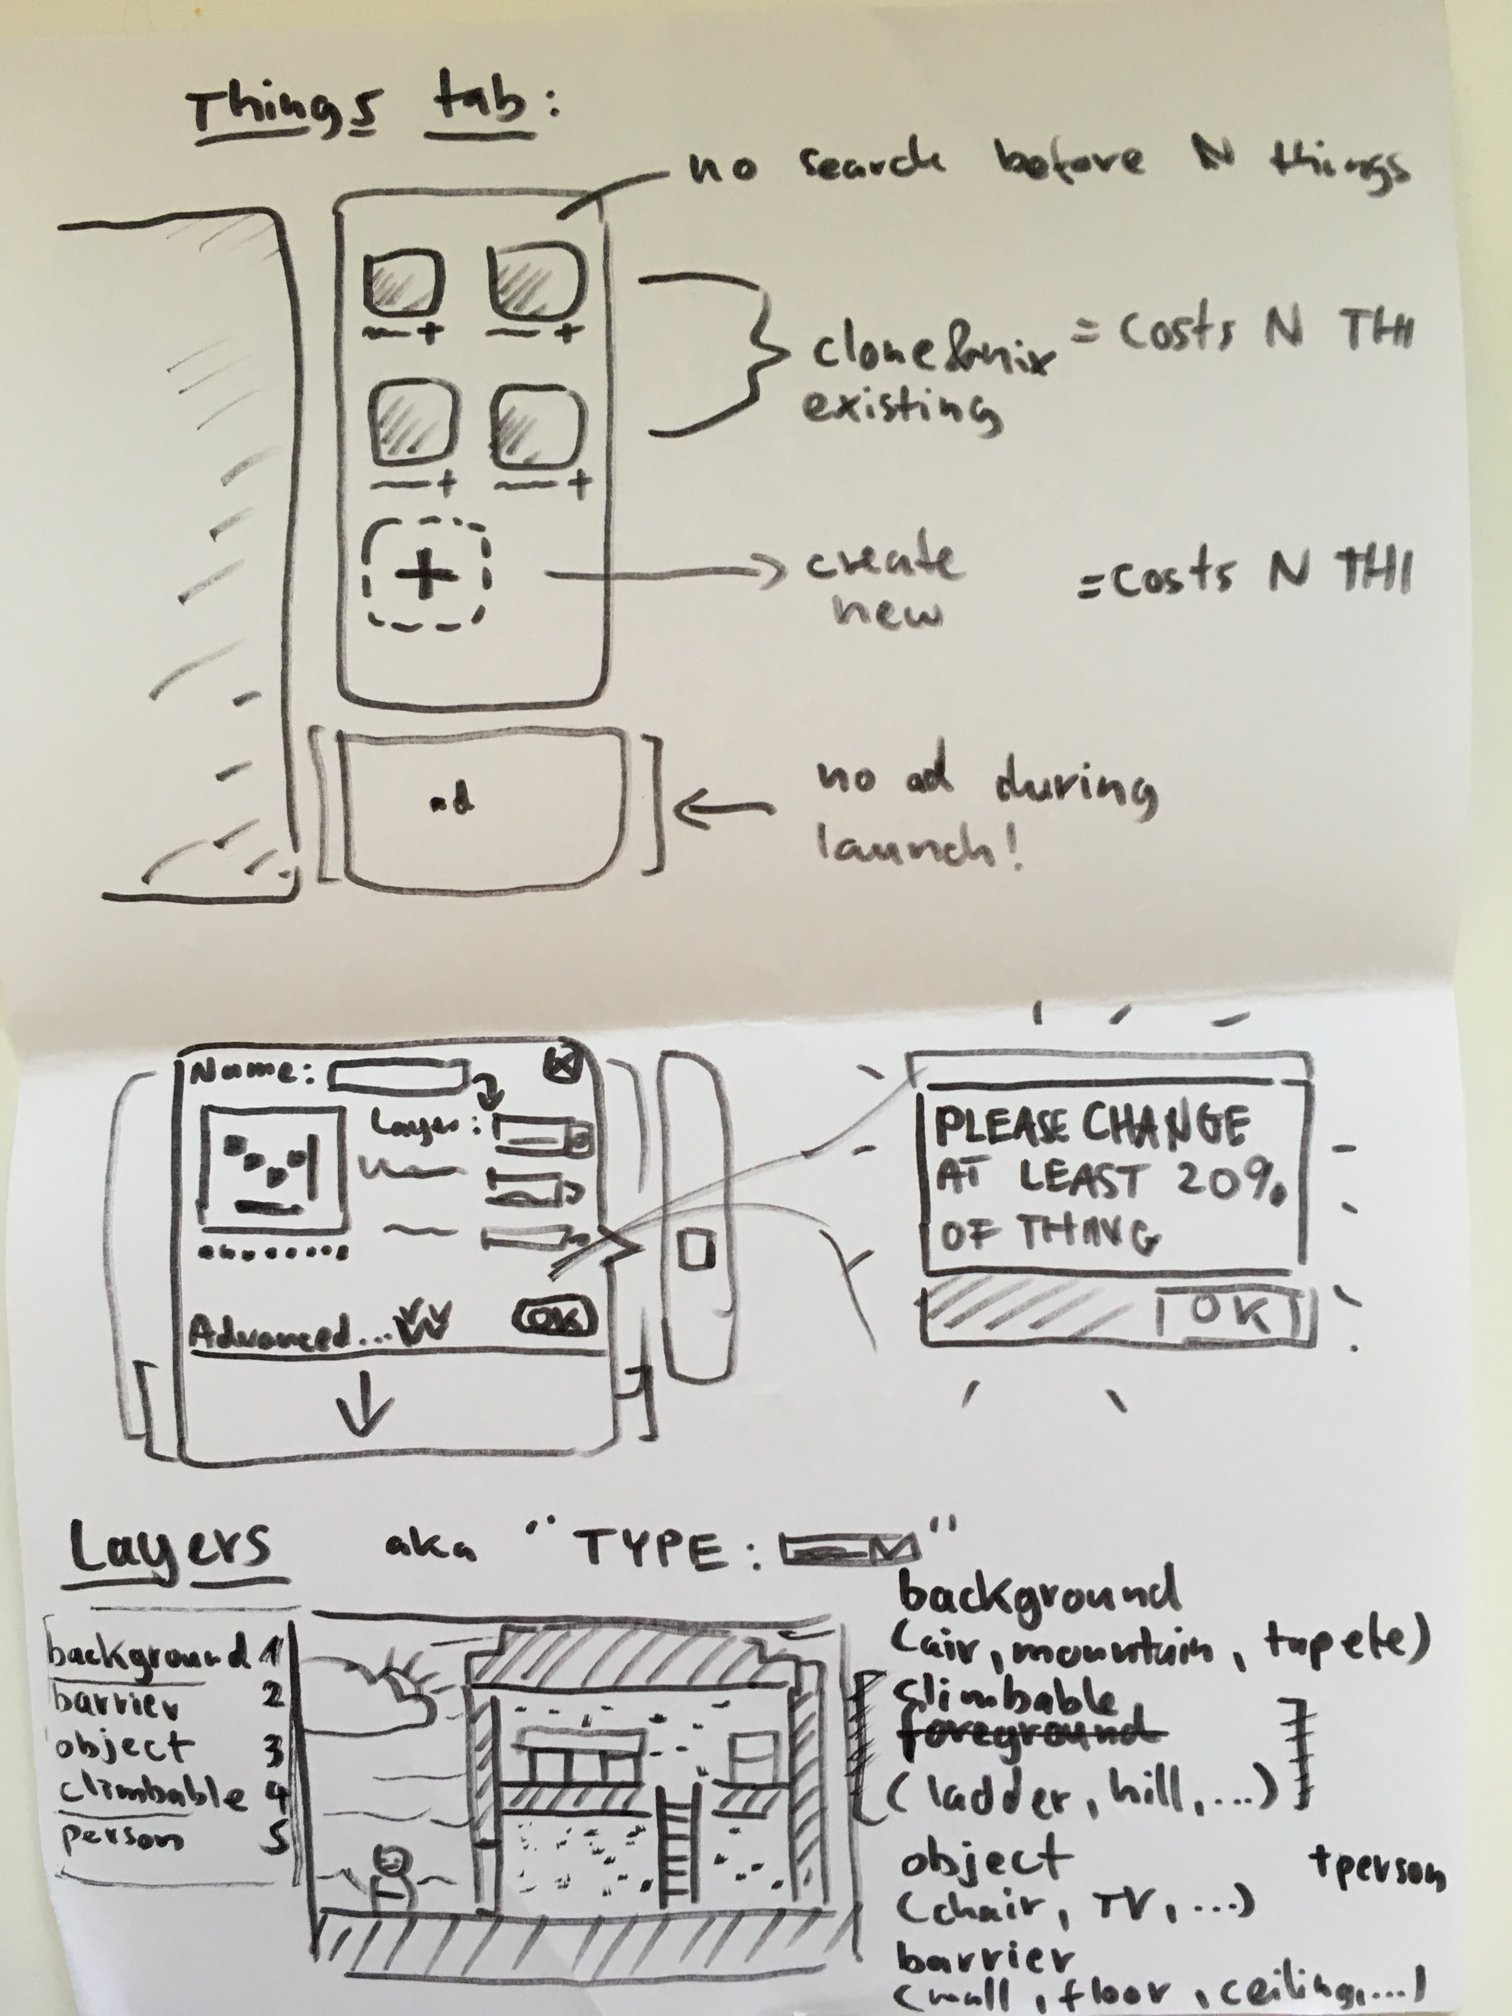 Things tab:
no search before N things
clone&mix = costs N THI
existing
create = costs N THI
new
ad
no ad during
launch!
Name:
Layer:
Advanced...
OK
PLEASE CHANGE
AT LEAST 20%
OF THING
OK
Layers aka "TYPE: "
background 1
barrier 2
object 3
climbable 4
person 5
background
(air, mountain, tapete)
climbable
foreground
(ladder, hill, ...)
object
(chair, TV, ...)
+person
barrier
(wall, floor, ceiling, ...)